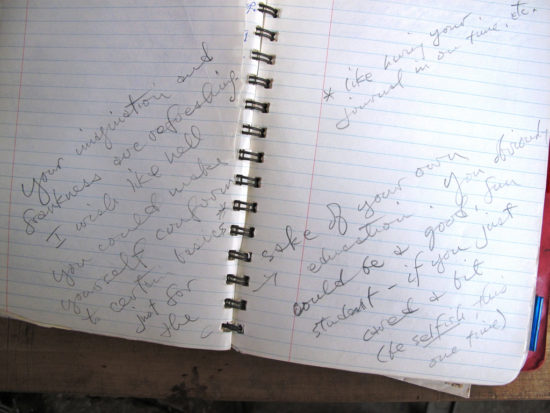 Your imagination and
frankness are refreshing
I wish like hell
you could make
yourself conform
to certain basics*
just for
the
→ sake of your own
education. You obviously
could be a good, fun
student - if you just
cared a bit
(be selfish this
one time)
* like having your
journal in on time, etc.